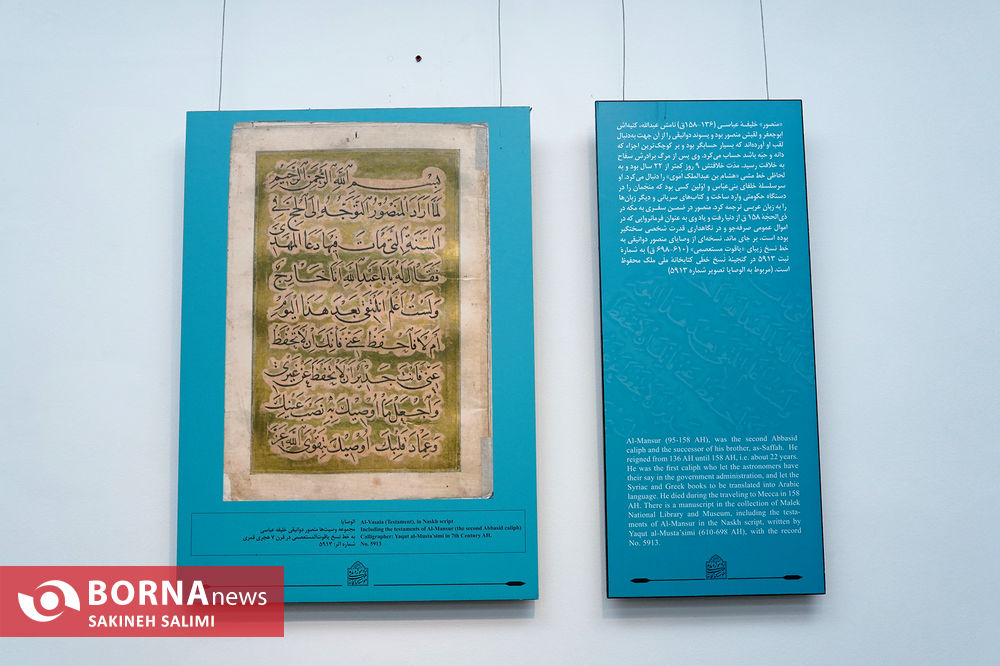 بسم الله الرحمن الرحيم
لما اراد المنصور التوجه الى الحج في
السنة التي مات فيها دعا المهدي
فقال له يا با عبد الله انا خارج
ولست اعلم انلتقي بعد هذا اليوم
ام لا فاحفظ عني فانك ان لا تحفظ
عني فانت جدير ان لا تحفظ عن غيري
واجعل ما اوصيك به نصب عينيك
وعماد قلبك اوصيك بتقوى الله
الوصایا
مجموعه وصیت‌ها منصور دوانیقی خلیفه عباسی
به خط نسخ یاقوت‌المستعصمی در قرن ۷ هجری قمری
شماره اثر: ۵۹۱۳
Al-Vasaia (Testament), in Naskh script
Including the testaments of Al-Mansur (the second Abbasid caliph)
Calligrapher: Yaqut al-Musta'simi in 7th Century AH.
No. 5913
«منصور» خلیفهٔ عباسی (۱۳۶–۱۵۸ق) نامش عبدالله، کنیه‌اش
ابوجعفر و لقبش منصور بود و پسوند دوانیقی را از آن جهت به‌دنبال
لقب او آورده‌اند که بسیار حسابگر بود و بر کوچک‌ترین اجزاء که
دانه و حبه باشد حساب می‌کرد. وی پس از مرگ برادرش سفاح
به خلافت رسید. مدت خلافتش ۹ روز کمتر از ۲۲ سال بود و به
لحاظی خط مشی «هشام بن عبدالملک اموی» را دنبال می‌کرد. او
سرسلسلهٔ خلفای بنی‌عباس و اولین کسی بود که منجمان را در
دستگاه حکومتی وارد ساخت و کتاب‌های سریانی و دیگر زبان‌ها
را به زبان عربی ترجمه کرد. منصور در ضمن سفری به مکه در
ذی‌الحجهٔ ۱۵۸ ق از دنیا رفت و یاد وی به عنوان فرمانروایی که در
اموال عمومی صرفه‌جو و در نگاهداری قدرت شخصی سختگیر
بوده است، بر جای ماند. نسخه‌ای از وصایای منصور دوانیقی به
خط نسخ زیبای «یاقوت مستعصمی» (۶۱۰–۶۹۸ ق) به شمارهٔ
ثبت ۵۹۱۳ در گنجینهٔ نسخ خطی کتابخانهٔ ملی ملک محفوظ
است. (مربوط به الوصایا تصویر شماره ۵۹۱۳)
Al-Mansur (95-158 AH), was the second Abbasid
caliph and the successor of his brother, as-Saffah. He
reigned from 136 AH until 158 AH, i.e. about 22 years.
He was the first caliph who let the astronomers have
their say in the government administration, and let the
Syriac and Greek books to be translated into Arabic
language. He died during the traveling to Mecca in 158
AH. There is a manuscript in the collection of Malek
National Library and Museum, including the testa-
ments of Al-Mansur in the Naskh script, written by
Yaqut al-Musta'simi (610-698 AH), with the record
No. 5913.
BORNAnews
SAKINEH SALIMI